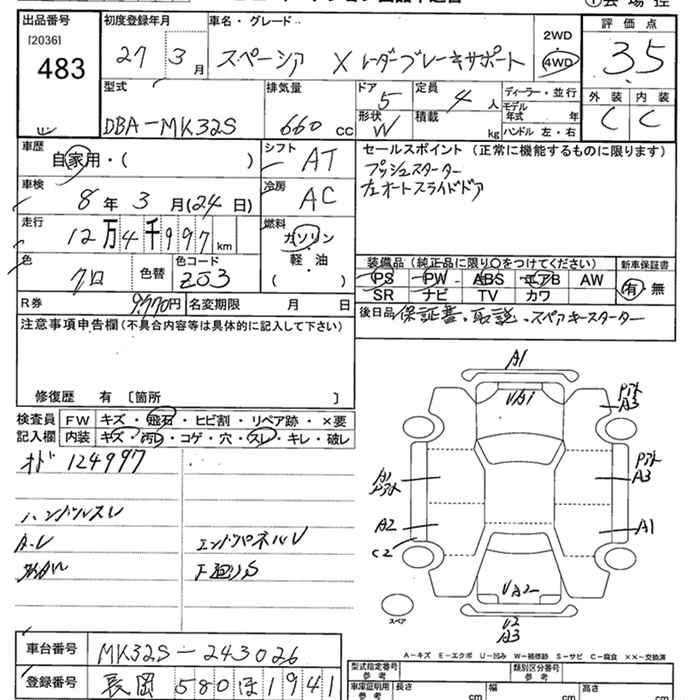 出品番号
[2036]
483
初度登録年月
27 3月
車名・グレード
スペーシア X レーダーブレーキサポート
2WD
4WD
評価点
3.5
外装 内装
C C
型式
DBA-MK32S
排気量
660cc
ドア
5
形状
W
定員
4人
積載
kg
ディーラー・並行
モデル
年式 年
ハンドル 左・右
車歴
自家用・( )
シフト
AT
セールスポイント(正常に機能するものに限ります)
プッシュスターター
左オートスライドドア
車検
8年 3月(24日)
冷房
AC
走行
12万4千997km
燃料
ガソリン
軽・油
( )
色
クロ
色替
色コード
ZJ3
装備品(純正品に限り○をつけてください)
PS PW ABS エアB AW
SR ナビ TV カワ
新車保証書
有・無
R券
9,770円
名変期限 月 日
後日品 保証書、取説、スペアキースターター
注意事項申告欄(不具合内容等は具体的に記入して下さい)
修復歴 有 [箇所 ]
検査員
記入欄
FW キズ・飛石・ヒビ割・リペア跡・×要
内装 キズ・汚レ・コゲ・穴・スレ・キレ・破レ
オド 124997
ハンドルスレ
エンドパネルU
下廻りS
A1
UA1
A3
A1
A3
A2
C2
A1
UA2
U2
A3
スペア
A-キズ E-エクボ U-凹み W-補修跡 S-サビ C-腐食 ××-交換済
車台番号
MK32S-243026
登録番号
長岡 580 ほ 1941
型式指定番号
参考
類別区分番号
参考
車庫証明用
参考
長さ cm
幅 cm
高さ cm